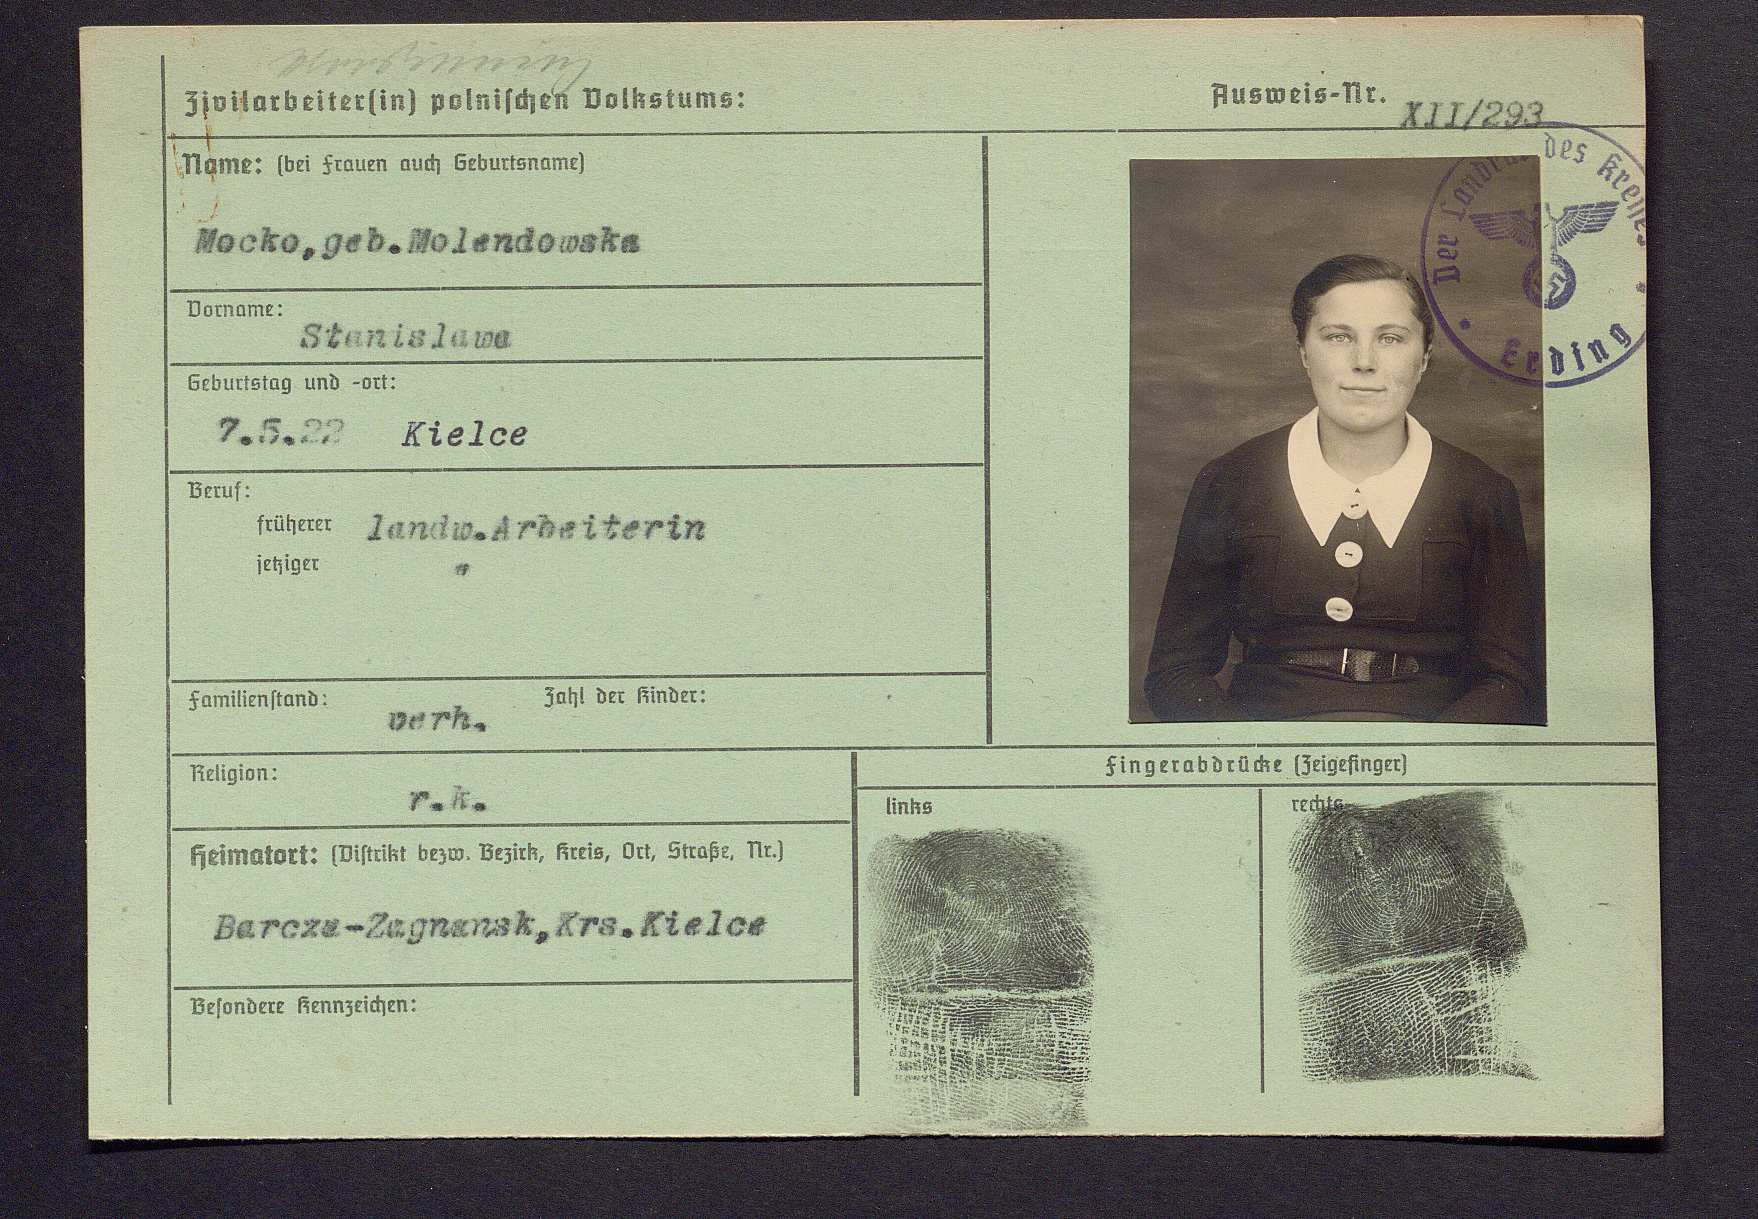 Zivilarbeiter(in) polnischen Volkstums:
Ausweis-Nr. XII/293
Name: (bei Frauen auch Geburtsname)
Mocko, geb. Molendowska
Vorname:
Stanislawa
Geburtstag und -ort:
7.5.22 Kielce
Beruf:
früherer landw. Arbeiterin
jetziger "
Familienstand: verh. Zahl der Kinder:
Religion:
r.k.
Heimatort: (Distrikt bezw. Bezirk, Kreis, Ort, Straße, Nr.)
Barcza-Zagnansk, Krs. Kielce
Besondere Kennzeichen:
Der Landrat des Kreises
Erding
Fingerabdrücke (Zeigefinger)
links
rechts